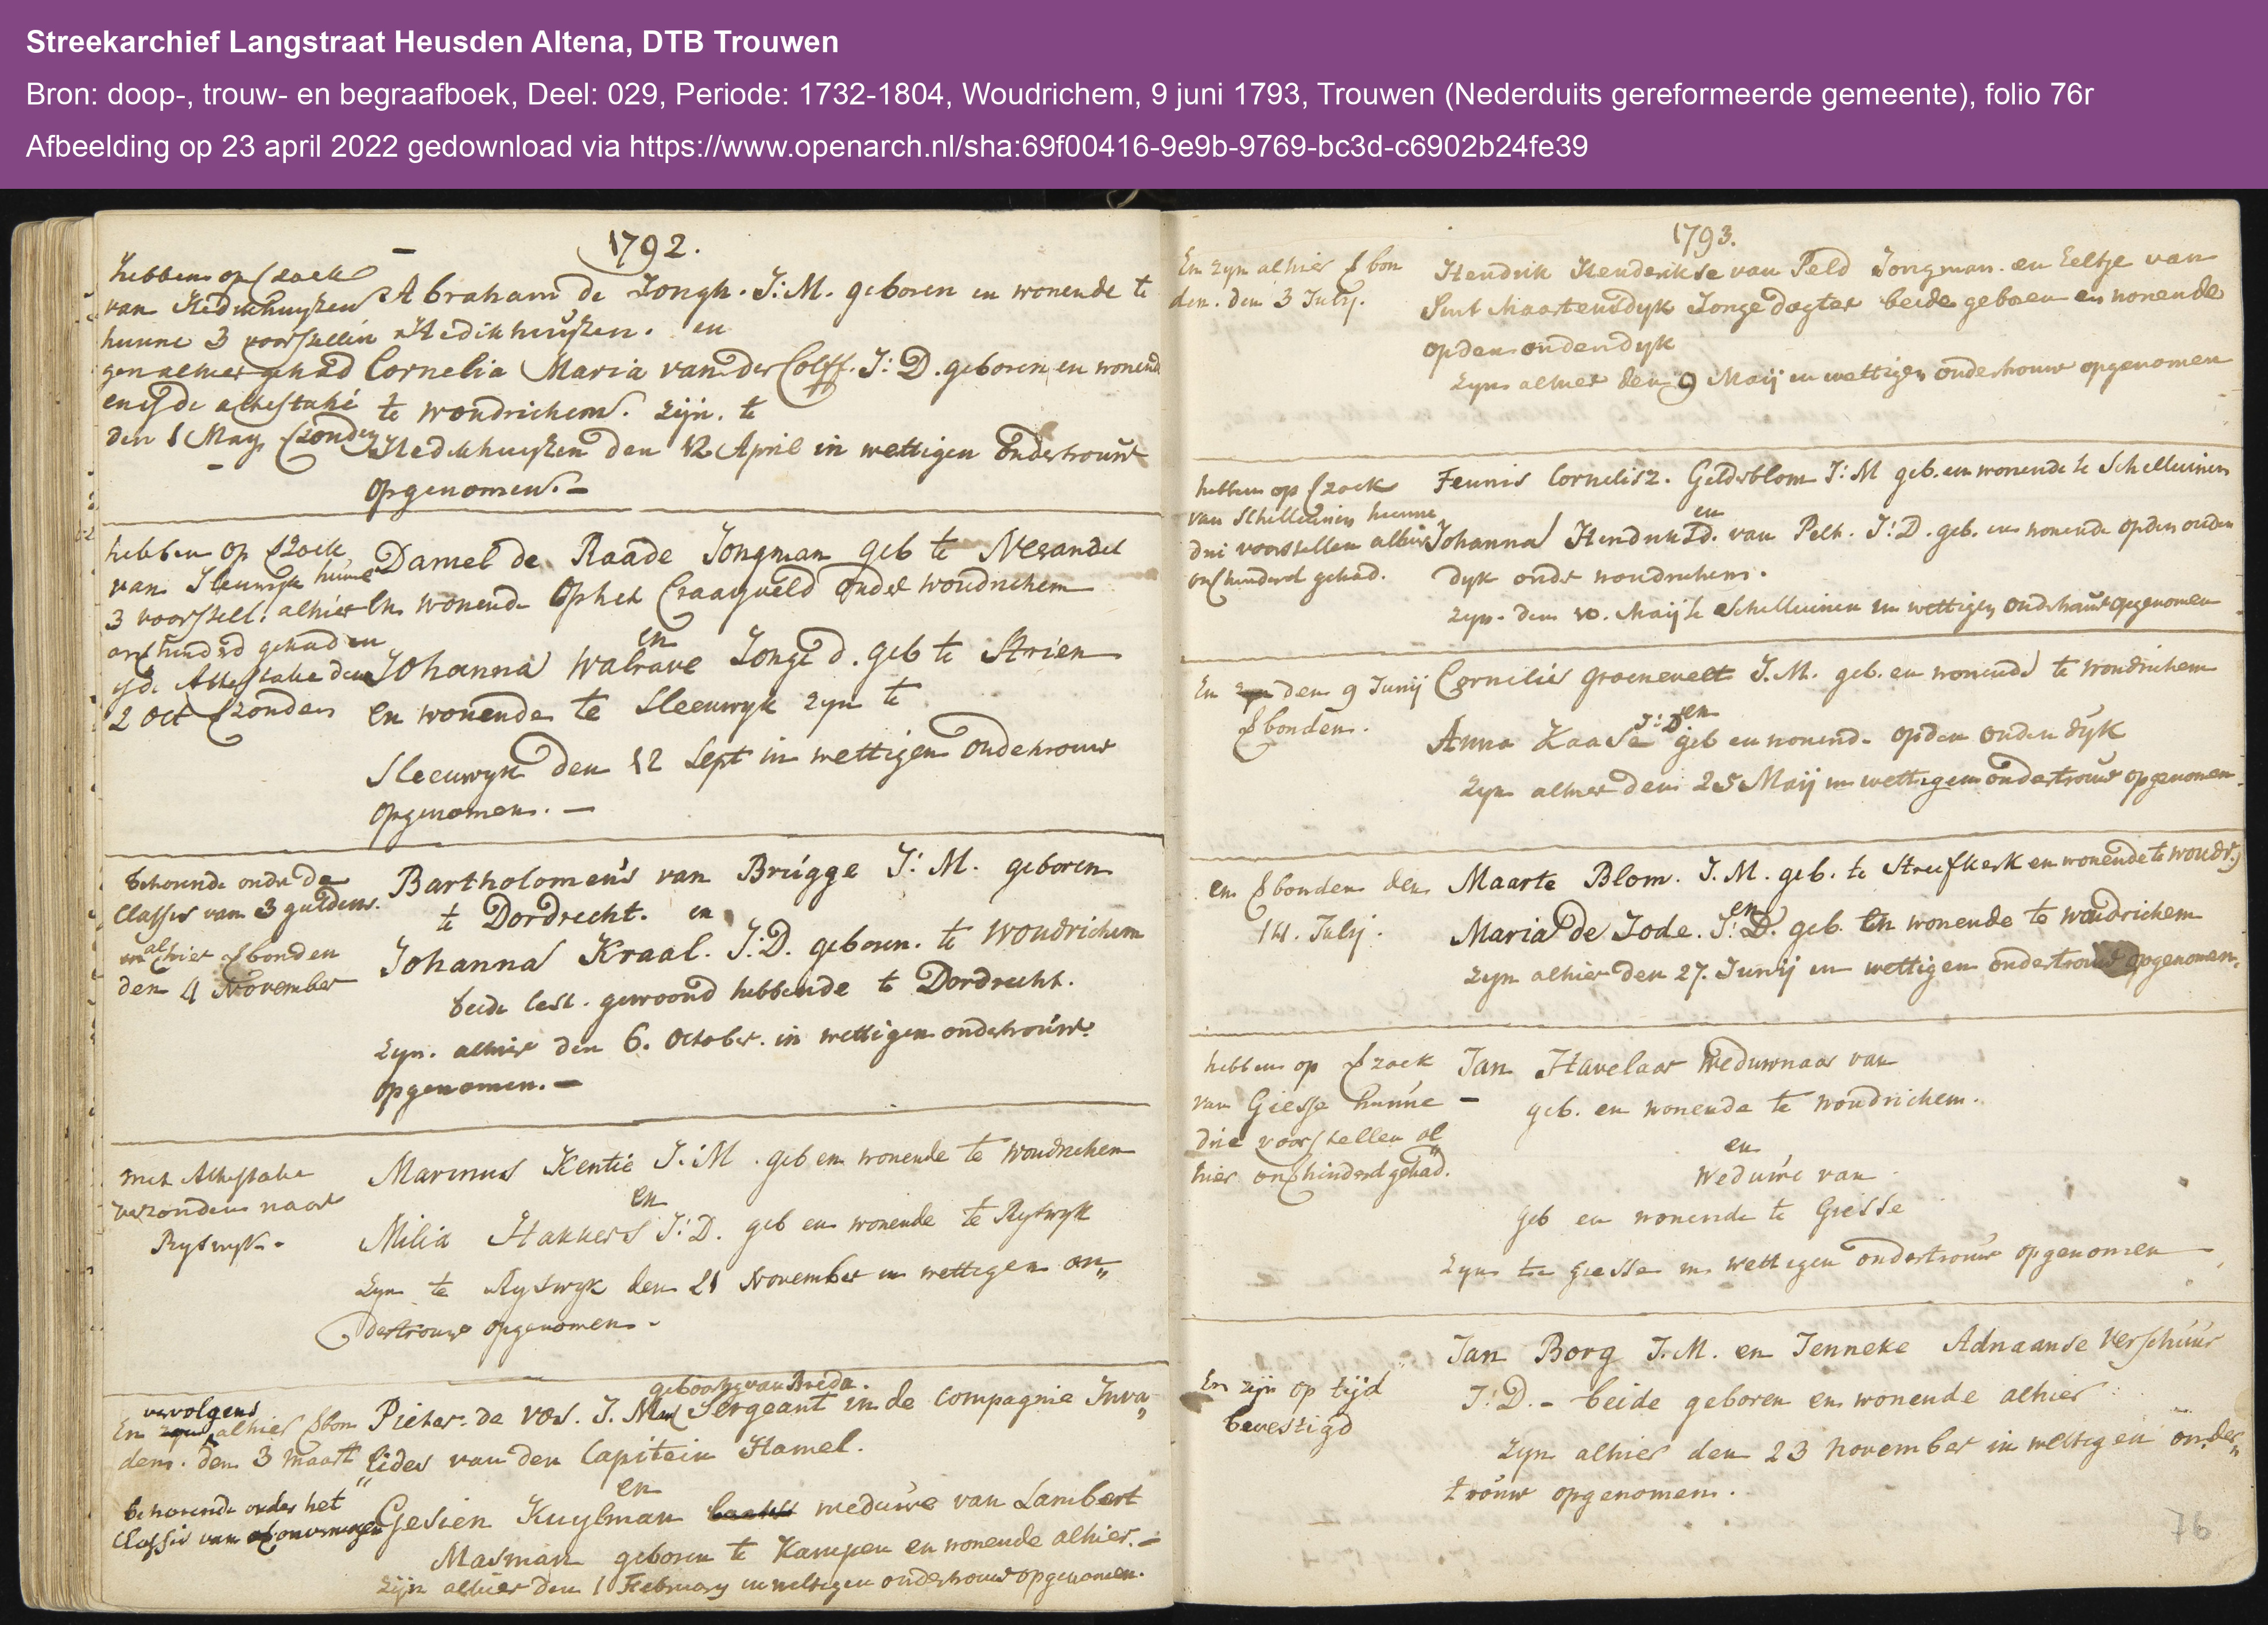 Streekarchief Langstraat Heusden Altena, DTB Trouwen
Bron: doop-, trouw- en begraafboek, Deel: 029, Periode: 1732-1804, Woudrichem, 9 juni 1793, Trouwen (Nederduits gereformeerde gemeente), folio 76r
Afbeelding op 23 april 2022 gedownload via https://www.openarch.nl/sha:69f00416-9e9b-9769-bc3d-c6902b24fe39
1792.
hebben op
van Hedikhuysen
hunne 3 voorstellin
gen alhier gehad
en is de attestatie
den 1 May
Abraham de Jongh. J:M. geboren en wonende te
Hedikhuysen. en
Cornelia Maria van der Colff. J:D. geboren en wonend
te woudrichem. zijn. te
Hedikhuysen den 12 April in wettigen ondertrouw
opgenomen. –
hebben op
van Sleeuwyk hunne
3 voorstell: alhier
gehad en
Attestatie den
2 Oct
Daniel de Raade Jongman geb te
en wonende op het onder woudrichem
en
Johanna Walrave Jonge d. geb te Strien
en wonende te Sleeuwyk zyn te
Sleeuwyk den 12 Sept in wettigen ondertrouw
opgenomen. –
behorende onder de
Classis van 3 guldens.
alhier
den 4 November
Bartholomeus van Brugge J:M. geboren
te Dordrecht. en
Johanna Kraal. J:D. geboren. te Woudrichem
beide lest. gewoond hebbende te Dordrecht.
zyn. alhier den 6. October. in wettigen ondertrouw
opgenomen. –
met Attestatie
verzonden naar
Ryswyk.
Marinus Kentie J:M. geb en wonende te Woudrichem
en
Milia Hakkers J:D. geb en wonende te Ryswyk
zyn te Ryswyk den 21 November in wettigen on„
dertrouw opgenomen.
vervolgens
En alhier
den. den 3 Maart
behorende onder het
Classis van onvermogen
geboortig van Breda.
Pieter de Vos. J.M. Sergeant in de compagnie Inva„
lides van den Capitein Hamel.
en
Gesien Kuylman weduwe van Lambert
Masman geboren te Kampen en wonende alhier. –
zijn alhier den 1 February in wettigen ondertrouw opgenomen.
1793.
En zyn alhier
den. den 3 July.
Hendrik Henderikse van Peld Jongman. en Eeltje van
Sint Maartensdyk Jonge dogter beide geboren en wonende
op den ouden dyk
zyn alhier den 9 Maij in wettigen ondertrouw opgenomen
hebben op
van Schelluinen hunne
drie voorstellen alhier
gehad.
Teunis Cornelisz. Geldsblom J:M geb. en wonende te Schelluinen
en
Johanna J:D. geb. en wonende op den ouden
dyk onder woudrichem.
zyn. den 10. Maij te Schelluinen in wettigen ondertrouw opgenomen
En den 9 Junij
Cornelis Groenevelt J.M. geb. en wonende te Woudrichem
en
Anna Kaase J:D. geb en wonende op den ouden dyk
zyn alhier den 25 Maij in wettigen ondertrouw opgenomen.
en den
14. July.
Maarte Blom. J.M. geb. te Streefkerk en wonende te woudr.
en
Maria de Jode. J:D. geb. en wonende te woudrichem
zyn alhier den 27. Junij in wettigen ondertrouw opgenomen.
hebben op
van Giesse hunne
drie voorstellen al
hier gehad.
Jan Havelaar Weduwnaar van
geb. en wonende te Woudrichem.
en
Weduwe van
geb en wonende te Giesse
zyn te Giesse in wettigen ondertrouw opgenomen
En zijn op tijd
bevestigd
Jan Borg J.M. en Jenneke Adriaanse Verschuur
J:D. – beide geboren en wonende alhier
zyn alhier den 23 November in wettigen onder„
trouw opgenomen.
76